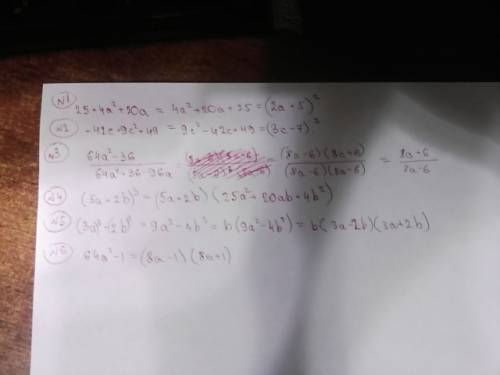 №1 25+4a²+20a = 4a²+20a+25 = (2a+5)²
№2 -42c+9c²+49 = 9c²-42c+49 = (3c-7)²
№3 64a²-36 / 64a²+36-96a = = (8a-6)(8a+6) / (8a-6)(8a-6) = 8a+6 / 8a-6
№4 (5a+2b)³ = (5a+2b)(25a²+20ab+4b²)
№5 = 9a²-4b³ = b(9a²-4b²) = b(3a-2b)(3a+2b)
№6 64a²-1 = (8a-1)(8a+1)